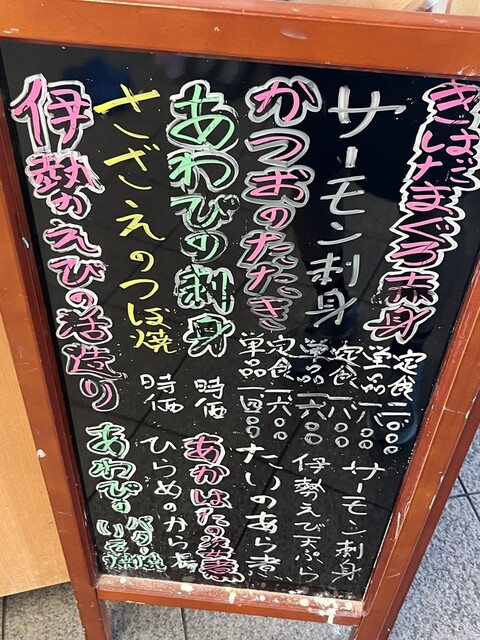 きはだまぐろ赤身
定食二〇〇〇
単品一八〇〇
サーモン刺身
定食一八〇〇
単品一六〇〇
かつおのたたき
定食一六〇〇
単品一四〇〇
あわびの刺身
時価
さざえのつぼ焼
時価
伊勢えびの活造り
サーモン刺身
伊勢えび天ぷら
たいのあら煮
あかはたの姿煮
ひらめのから揚
あわびの
バター焼